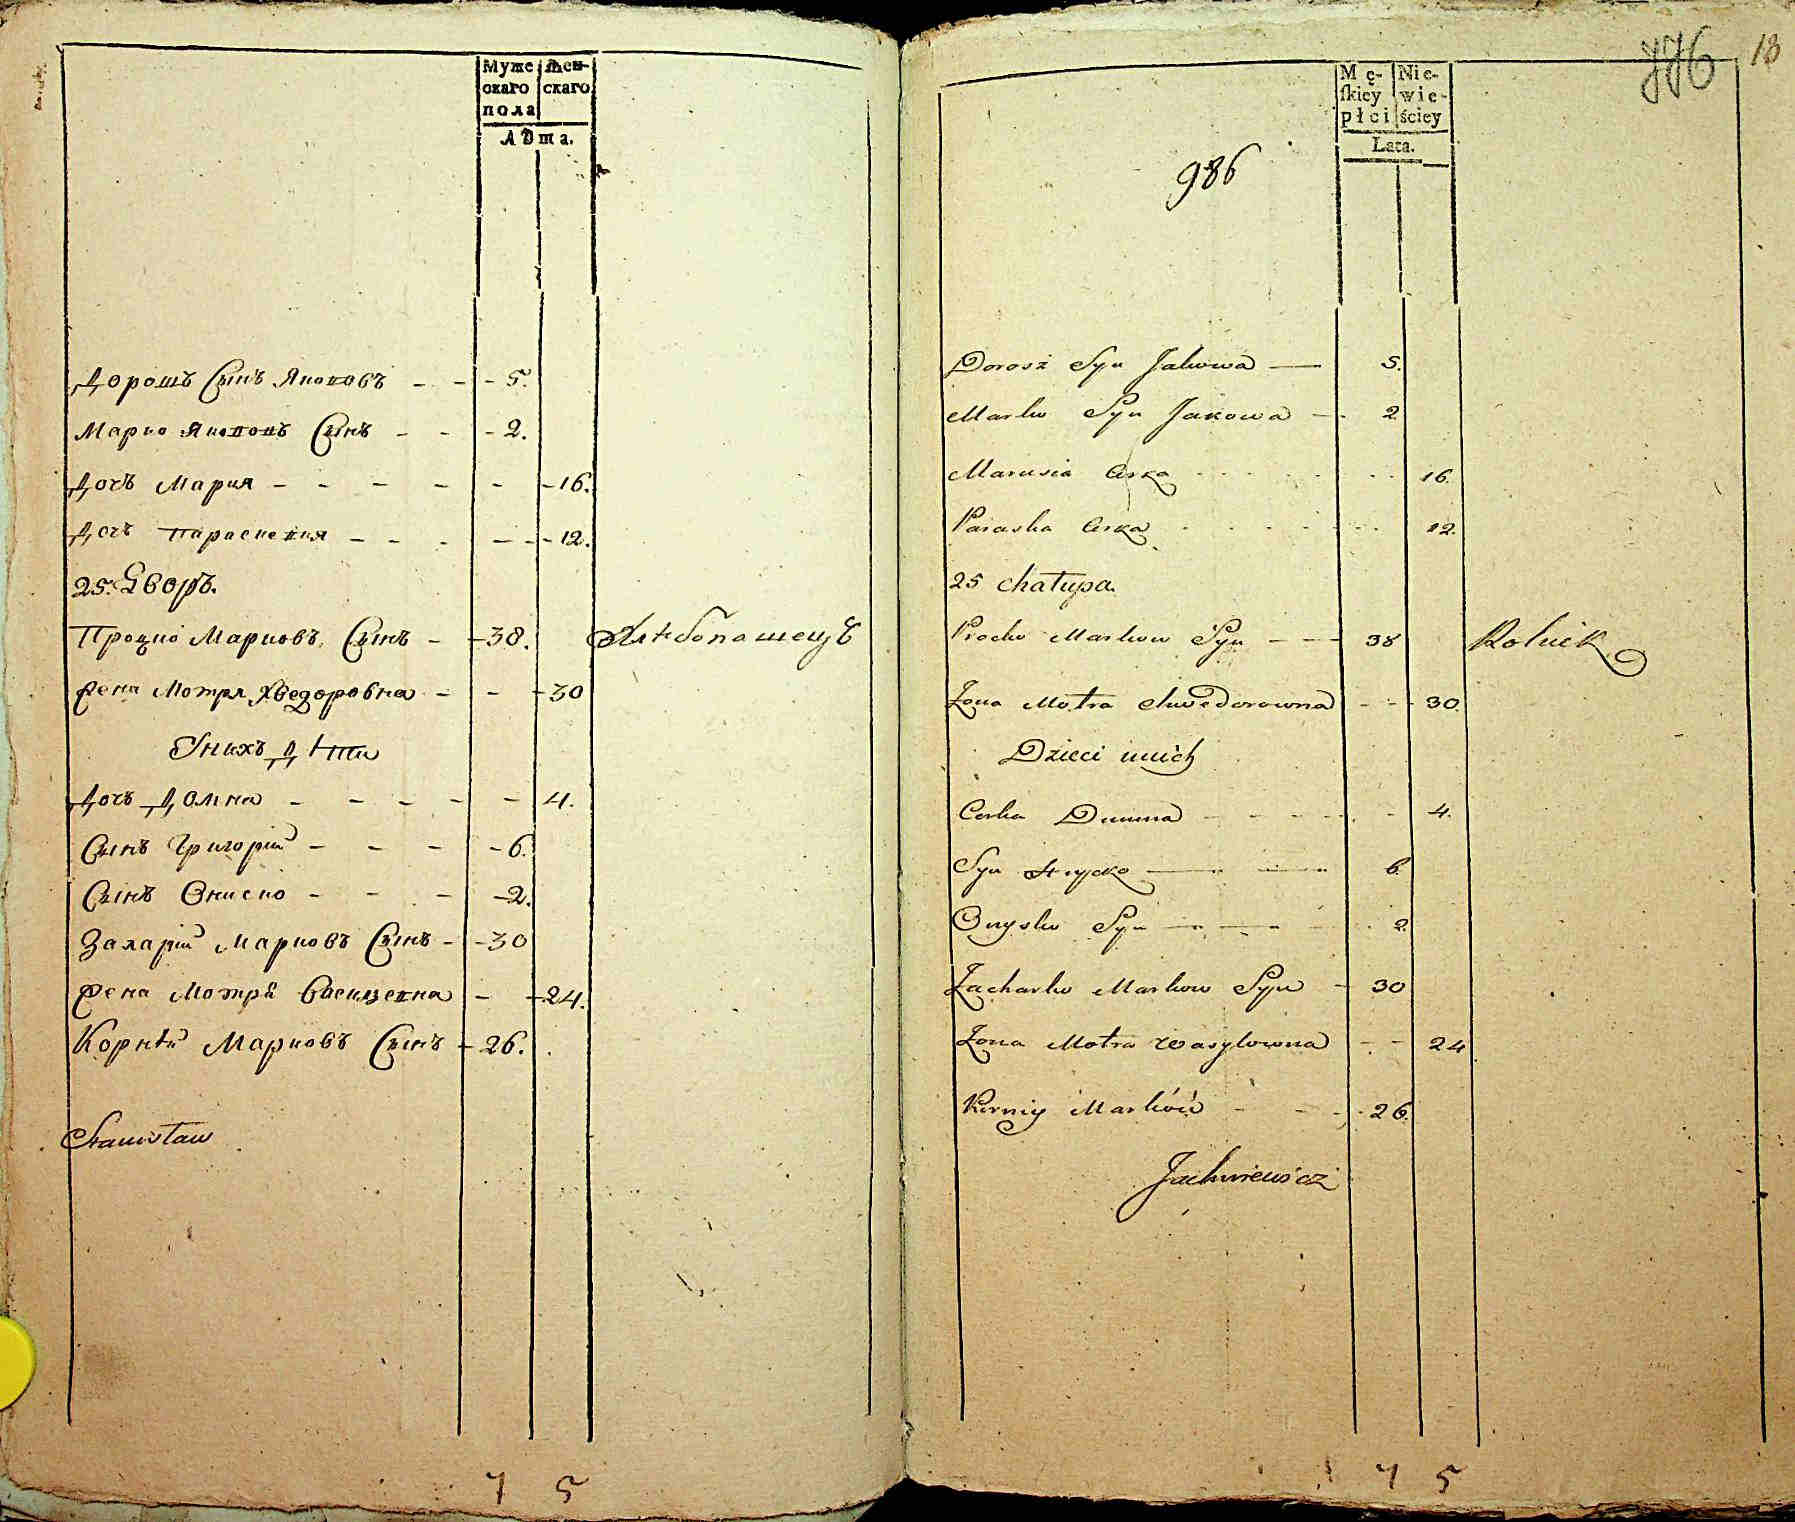 Муже
скаго
пола
Жен-
скаго
Лѣта.
Дорошъ Сынъ Яковъ - - - 5.
Марко Яковъ Сынъ - - - 2.
Дочь Мария - - - - - - 16.
Дочь Параскевия - - - - - - 12.
25. Дворъ.
Процко Марковъ Сынъ - - 38. Хлѣбопашецъ
Жена Мотря Хведоровна - - - 30
У нихъ Дѣти
Дочь Домна - - - - - 4.
Сынъ Григорій - - - - 6.
Сынъ Ониско - - - - 2.
Захарій Марковъ Сынъ - - 30
Жена Мотря - - 24.
Корнѣй Марковъ Сынъ - 26.
Stanisław
7 5
776 18
Mę-
skiey
płci
Nie-
wie-
ściey
Lata.
986
Dorosz Syn Jakowa — 5.
Marko Syn Jakowa — 2
Marusia Curka 16.
Paraska Curka 12.
25 chałupa.
Procko Markow Syn — — 38 Rolnik
Żona Motra Chwedorowna - - - 30.
Dzieci u nich
Corka Dumna - - - - - 4.
Syn Hrycko — — 6.
Onysko Syn — — 2.
Zacharko Markow Syn - 30
Żona Motra Wasylowna - - 24
Korniy Marków - - - 26.
Jachniewicz
7 5